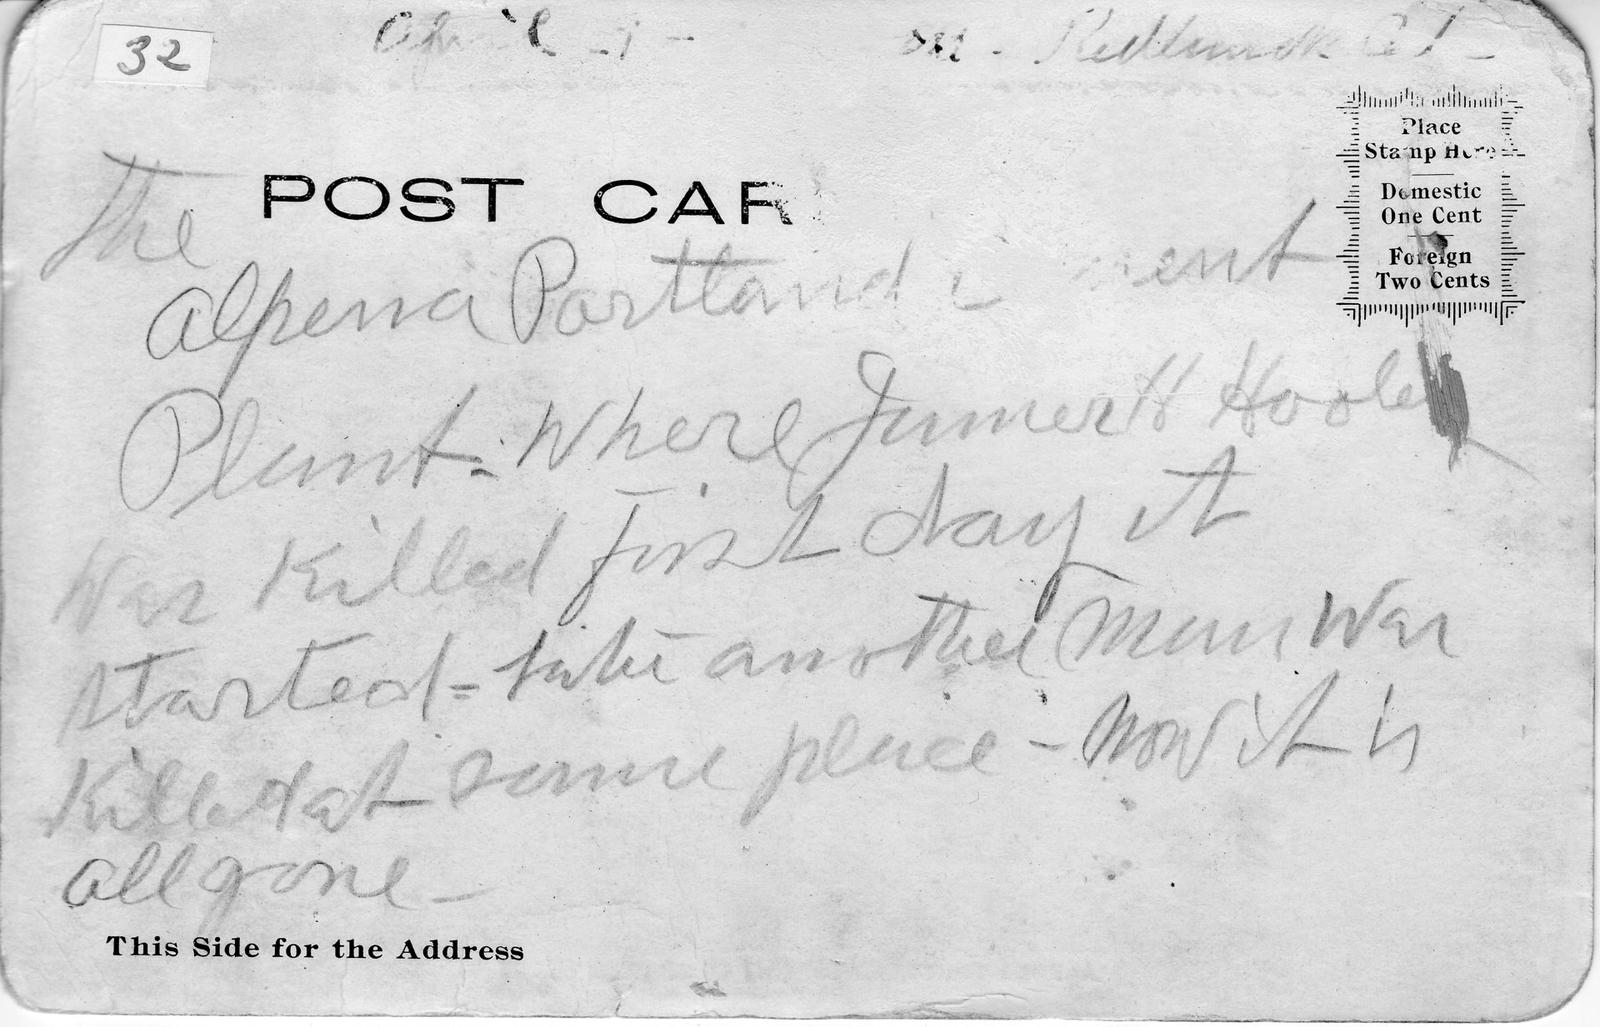 32
April
POST CAR
Place
Stamp Here
Domestic
One Cent
Foreign
Two Cents
The
Alpena Portland ment
Plant - Where James H Hoole
was killed first day it
started - later another man was
killed at same place - now it is
all gone -
This Side for the Address